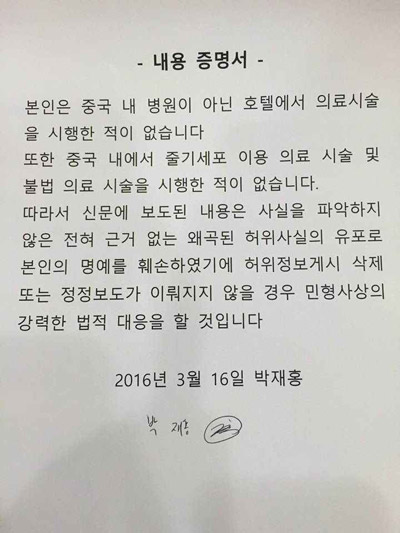 - 내용 증명서 -
본인은 중국 내 병원이 아닌 호텔에서 의료시술
을 시행한 적이 없습니다
또한 중국 내에서 줄기세포 이용 의료 시술 및
불법 의료 시술을 시행한 적이 없습니다.
따라서 신문에 보도된 내용은 사실을 파악하지
않은 전혀 근거 없는 왜곡된 허위사실의 유포로
본인의 명예를 훼손하였기에 허위정보게시 삭제
또는 정정보도가 이뤄지지 않을 경우 민형사상의
강력한 법적 대응을 할 것입니다
2016년 3월 16일 박재홍
박 재홍